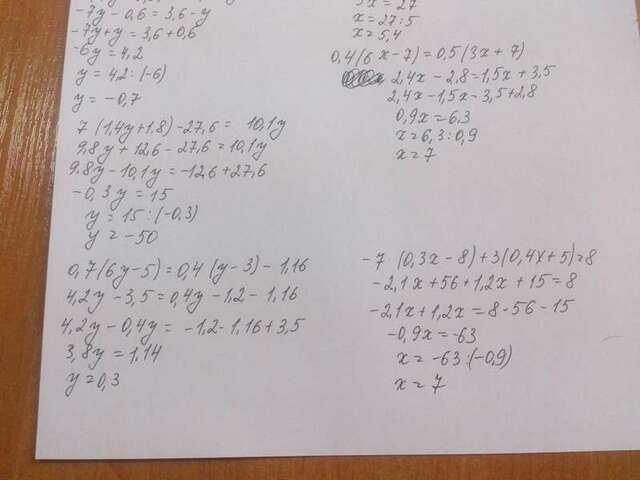 -7y-0,6=3,6-y
-7y+y=3,6+0,6
-6y=4,2
y=42:(-6)
y=-0,7
7(1,4y+1,8)-27,6=10,1y
9,8y+12,6-27,6=10,1y
9,8y-10,1y=-12,6+27,6
-0,3y=15
y=15:(-0,3)
y=-50
0,7(6y-5)=0,4(y-3)-1,16
4,2y-3,5=0,4y-1,2-1,16
4,2y-0,4y=-1,2-1,16+3,5
3,8y=1,14
y=0,3
5x=27
x=27:5
x=5,4
0,4(6x-7)=0,5(3x+7)
2,4x-2,8=1,5x+3,5
2,4x-1,5x=3,5+2,8
0,9x=6,3
x=6,3:0,9
x=7
-7(0,3x-8)+3(0,4x+5)=8
-2,1x+56+1,2x+15=8
-2,1x+1,2x=8-56-15
-0,9x=-63
x=-63:(-0,9)
x=7